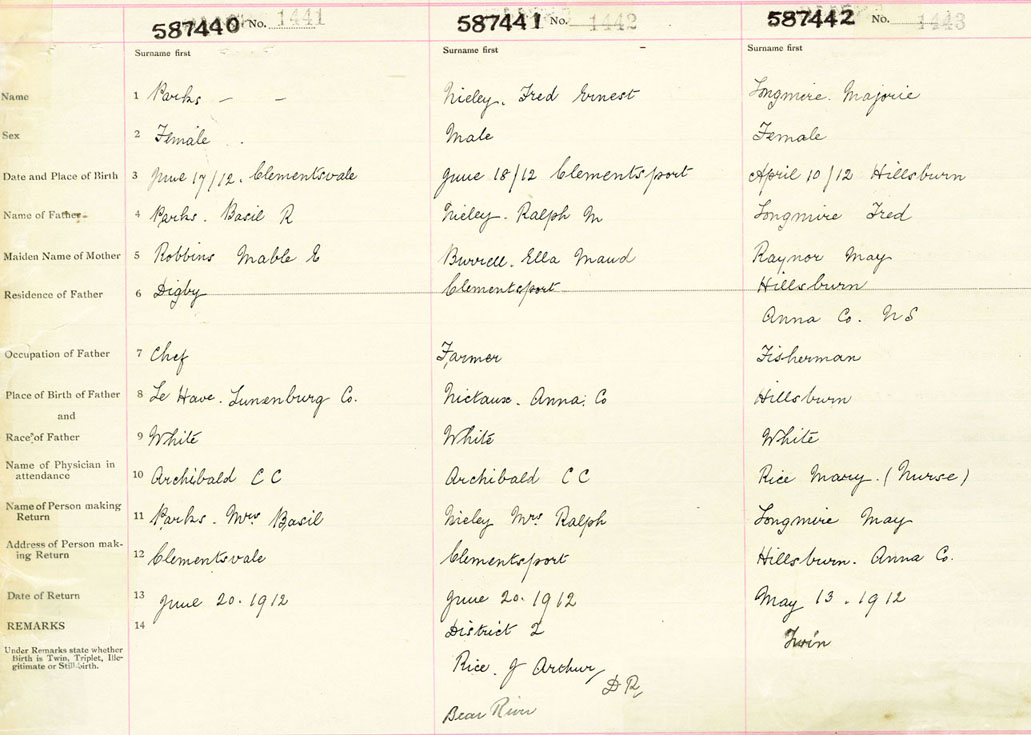 587440 No. 1441 587441 No. 1442 587442 No. 1443
Surname first Surname first Surname first
Name 1 Parks — — Nieley. Fred Ernest Longmire. Majorie
Sex 2 Female Male Female
Date and Place of Birth 3 June 17/12. Clementsvale June 18/12 Clementsport April 10/12 Hillsburn
Name of Father 4 Parks. Basil R Nieley. Ralph M Longmire Fred
Maiden Name of Mother 5 Robbins Mable E Burrell. Ella Maud Raynor May
Residence of Father 6 Digby Clementsport Hillsburn
Anna Co. NS
Occupation of Father 7 Chef Farmer Fisherman
Place of Birth of Father 8 Le Have. Lunenburg Co. Nictaux. Anna. Co Hillsburn
and
Race of Father 9 White White White
Name of Physician in
attendance 10 Archibald C C Archibald C C Rice Mary. (Nurse)
Name of Person making
Return 11 Parks. Mrs Basil Nieley Mrs Ralph Longmire May
Address of Person mak-
ing Return 12 Clementsvale Clementsport Hillsburn. Anna Co.
Date of Return 13 June 20. 1912 June 20. 1912 May 13. 1912
REMARKS 14 District 2 Twin
Under Remarks state whether
Birth is Twin, Triplet, Ille-
gitimate or Still-birth.
Rice. J Arthur
D R,
Bear River